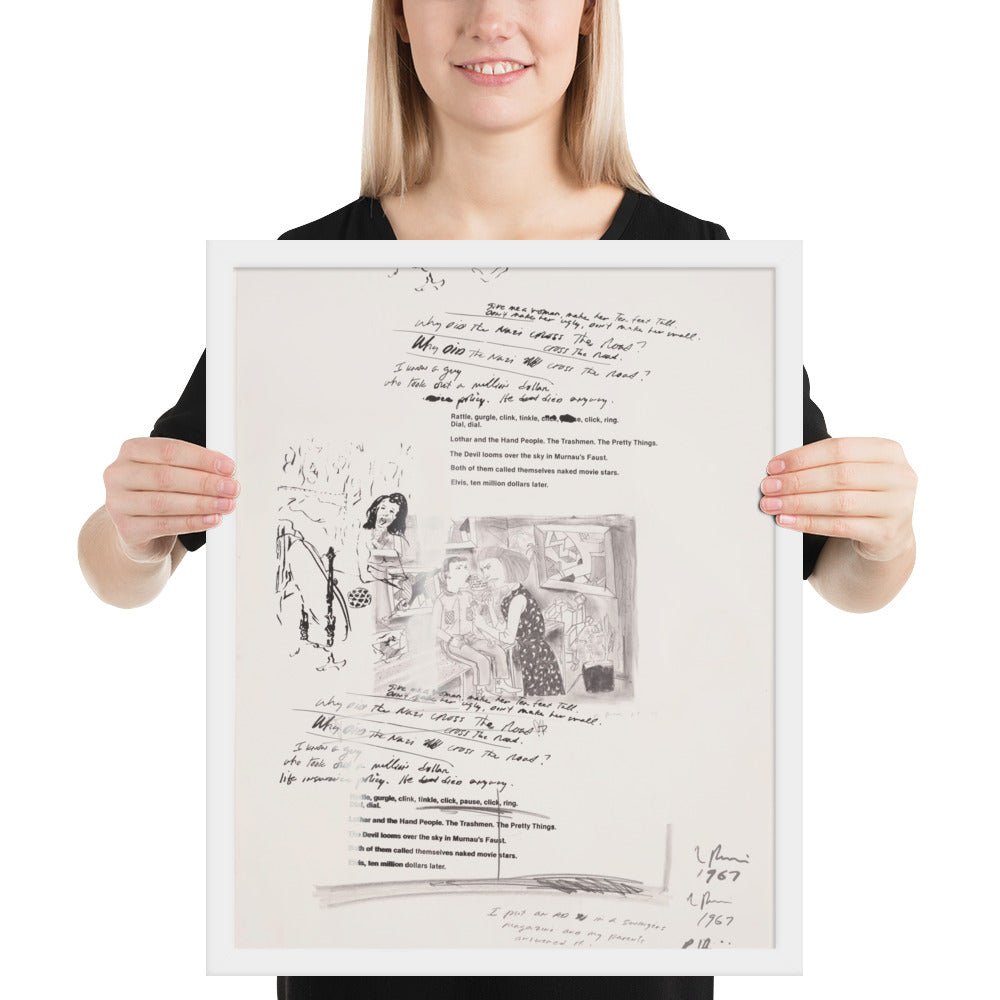 Give me a woman, make her Ten feet Tall.
Don't make her ugly, don't make her small.
Why DID The Nazi CROSS The Road?
cross The Road.
Why DID The Nazi cross The Road?
I know a guy
who Took out a million dollar
policy. He died anyway.
Rattle, gurgle, clink, tinkle, click, pause, click, ring.
Dial, dial.
Lothar and the Hand People. The Trashmen. The Pretty Things.
The Devil looms over the sky in Murnau's Faust.
Both of them called themselves naked movie stars.
Elvis, ten million dollars later.
Give me a woman, make her Ten feet Tall.
Don't make her ugly, don't make her small.
Why DID The Nazi CROSS The Road
cross The Road.
Why DID The Nazi cross The Road?
I know a guy
who Took out a million dollar
life insurance policy. He died anyway.
Rattle, gurgle, clink, tinkle, click, pause, click, ring.
Dial, dial.
Lothar and the Hand People. The Trashmen. The Pretty Things.
The Devil looms over the sky in Murnau's Faust.
Both of them called themselves naked movie stars.
Elvis, ten million dollars later.
1967
1967
I put an AD in a swingers
magazine and my parents
answered it!